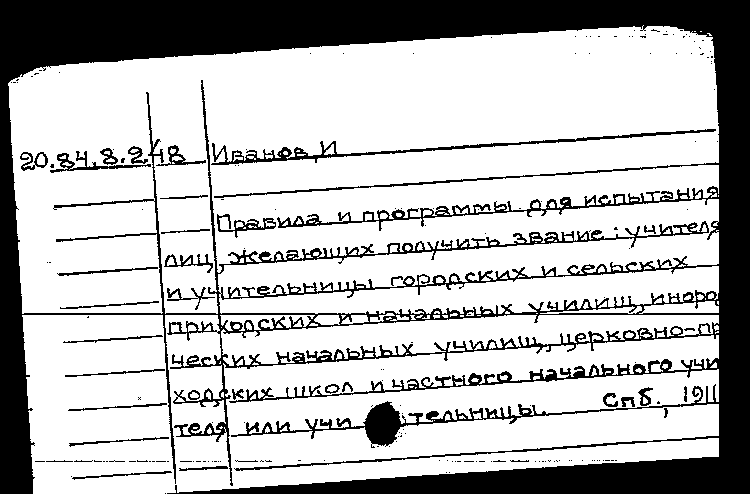 20.84.8.2/48 Иванов, И
Правила и программы для испытания
лиц, желающих получить звание: учителя
и учительницы городских и сельских
приходских и начальных училищ, инород
ческих начальных училищ, церковно-пр
ходских школ и частного начального учи
теля или учи тельницы. Спб., 1911